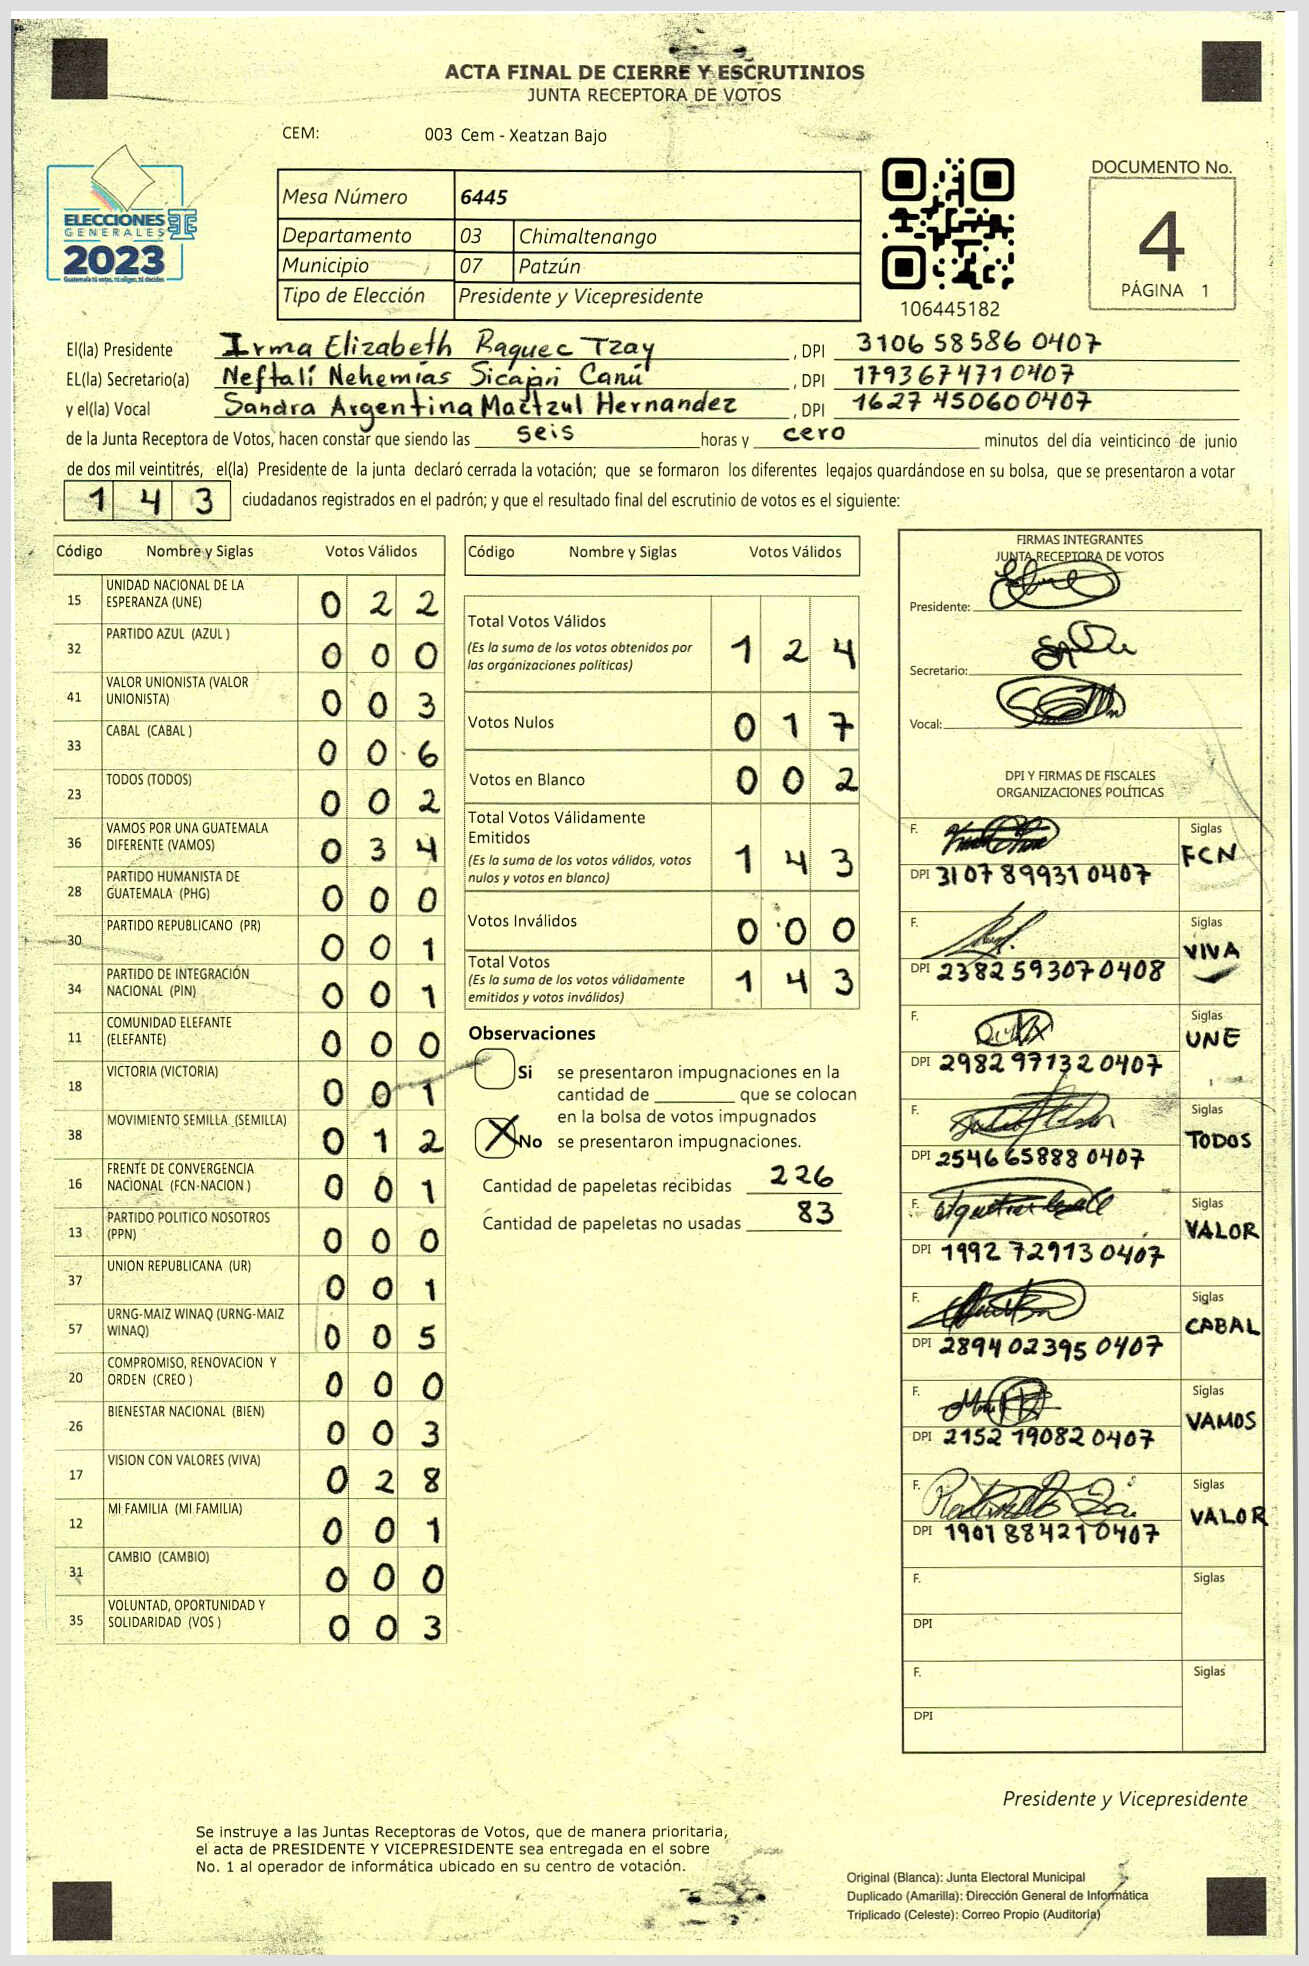 ACTA FINAL DE CIERRE Y ESCRUTINIOS
JUNTA RECEPTORA DE VOTOS
CEM: 003 Cem - Xeatzan Bajo
ELECCIONES
GENERALES
2023
Guatemala tú votas, tú eliges, tú decides
Mesa Número 6445
Departamento 03 Chimaltenango
Municipio 07 Patzún
Tipo de Elección Presidente y Vicepresidente
106445182
DOCUMENTO No.
4
PÁGINA 1
El(la) Presidente Irma Elizabeth Raquec Tzay , DPI 3106 58586 0407
EL(la) Secretario(a) Neftalí Nehemías Sicajan Canú , DPI 1793674710407
y el(la) Vocal Sandra Argentina Martzul Hernandez , DPI 1627 450600407
de la Junta Receptora de Votos, hacen constar que siendo las seis horas y cero minutos del día veinticinco de junio
de dos mil veintitrés, el(la) Presidente de la junta declaró cerrada la votación; que se formaron los diferentes legajos quardándose en su bolsa, que se presentaron a votar
1 4 3 ciudadanos registrados en el padrón; y que el resultado final del escrutinio de votos es el siguiente:
Código Nombre y Siglas Votos Válidos
15 UNIDAD NACIONAL DE LA
ESPERANZA (UNE) 0 2 2
32 PARTIDO AZUL (AZUL ) 0 0 0
41 VALOR UNIONISTA (VALOR
UNIONISTA) 0 0 3
33 CABAL (CABAL ) 0 0 6
23 TODOS (TODOS) 0 0 2
36 VAMOS POR UNA GUATEMALA
DIFERENTE (VAMOS) 0 3 4
28 PARTIDO HUMANISTA DE
GUATEMALA (PHG) 0 0 0
30 PARTIDO REPUBLICANO (PR) 0 0 1
34 PARTIDO DE INTEGRACIÓN
NACIONAL (PIN) 0 0 1
11 COMUNIDAD ELEFANTE
(ELEFANTE) 0 0 0
18 VICTORIA (VICTORIA) 0 0 1
38 MOVIMIENTO SEMILLA (SEMILLA) 0 1 2
16 FRENTE DE CONVERGENCIA
NACIONAL (FCN-NACION ) 0 0 1
13 PARTIDO POLITICO NOSOTROS
(PPN) 0 0 0
37 UNION REPUBLICANA (UR) 0 0 1
57 URNG-MAIZ WINAQ (URNG-MAIZ
WINAQ) 0 0 5
20 COMPROMISO, RENOVACION Y
ORDEN (CREO ) 0 0 0
26 BIENESTAR NACIONAL (BIEN) 0 0 3
17 VISION CON VALORES (VIVA) 0 2 8
12 MI FAMILIA (MI FAMILIA) 0 0 1
31 CAMBIO (CAMBIO) 0 0 0
35 VOLUNTAD, OPORTUNIDAD Y
SOLIDARIDAD (VOS ) 0 0 3
Código Nombre y Siglas Votos Válidos
Total Votos Válidos 1 2 4
(Es la suma de los votos obtenidos por
las organizaciones políticas)
Votos Nulos 0 1 7
Votos en Blanco 0 0 2
Total Votos Válidamente
Emitidos 1 4 3
(Es la suma de los votos válidos, votos
nulos y votos en blanco)
Votos Inválidos 0 0 0
Total Votos 1 4 3
(Es la suma de los votos válidamente
emitidos y votos inválidos)
Observaciones
Si se presentaron impugnaciones en la
cantidad de ________ que se colocan
en la bolsa de votos impugnados
X No se presentaron impugnaciones.
Cantidad de papeletas recibidas 226
Cantidad de papeletas no usadas 83
FIRMAS INTEGRANTES
JUNTA RECEPTORA DE VOTOS
Presidente:
Secretario:
Vocal:
DPI Y FIRMAS DE FISCALES
ORGANIZACIONES POLÍTICAS
F. Siglas
FCN
DPI 3107 89931 0407
F. Siglas
VIVA
DPI 2382 59307 0408
F. Siglas
UNE
DPI 2982 97132 0407
F. Siglas
TODOS
DPI 2546 65888 0407
F. Siglas
VALOR
DPI 1992 72913 0407
F. Siglas
CABAL
DPI 2894 02395 0407
F. Siglas
VAMOS
DPI 2152 19082 0407
F. Siglas
VALOR
DPI 1901 88421 0407
F. Siglas
DPI
F. Siglas
DPI
Presidente y Vicepresidente
Se instruye a las Juntas Receptoras de Votos, que de manera prioritaria,
el acta de PRESIDENTE Y VICEPRESIDENTE sea entregada en el sobre
No. 1 al operador de informática ubicado en su centro de votación.
Original (Blanca): Junta Electoral Municipal
Duplicado (Amarilla): Dirección General de Informática
Triplicado (Celeste): Correo Propio (Auditoría)